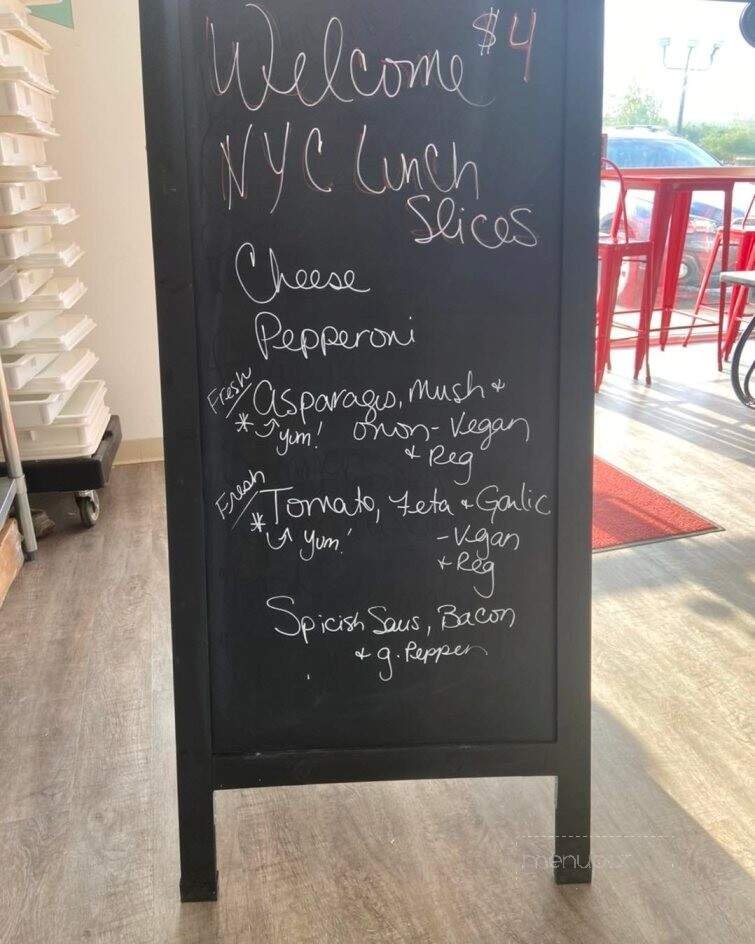 Welcome $4
NYC Lunch
Slices
Cheese
Pepperoni
Fresh Asparagus, Mush +
* Yum! onon - Vegan
+ Reg
Fresh Tomato, Feta + Garlic
* Yum! - Vegan
+ Reg
Spicish Saus, Bacon
+ g. Pepper